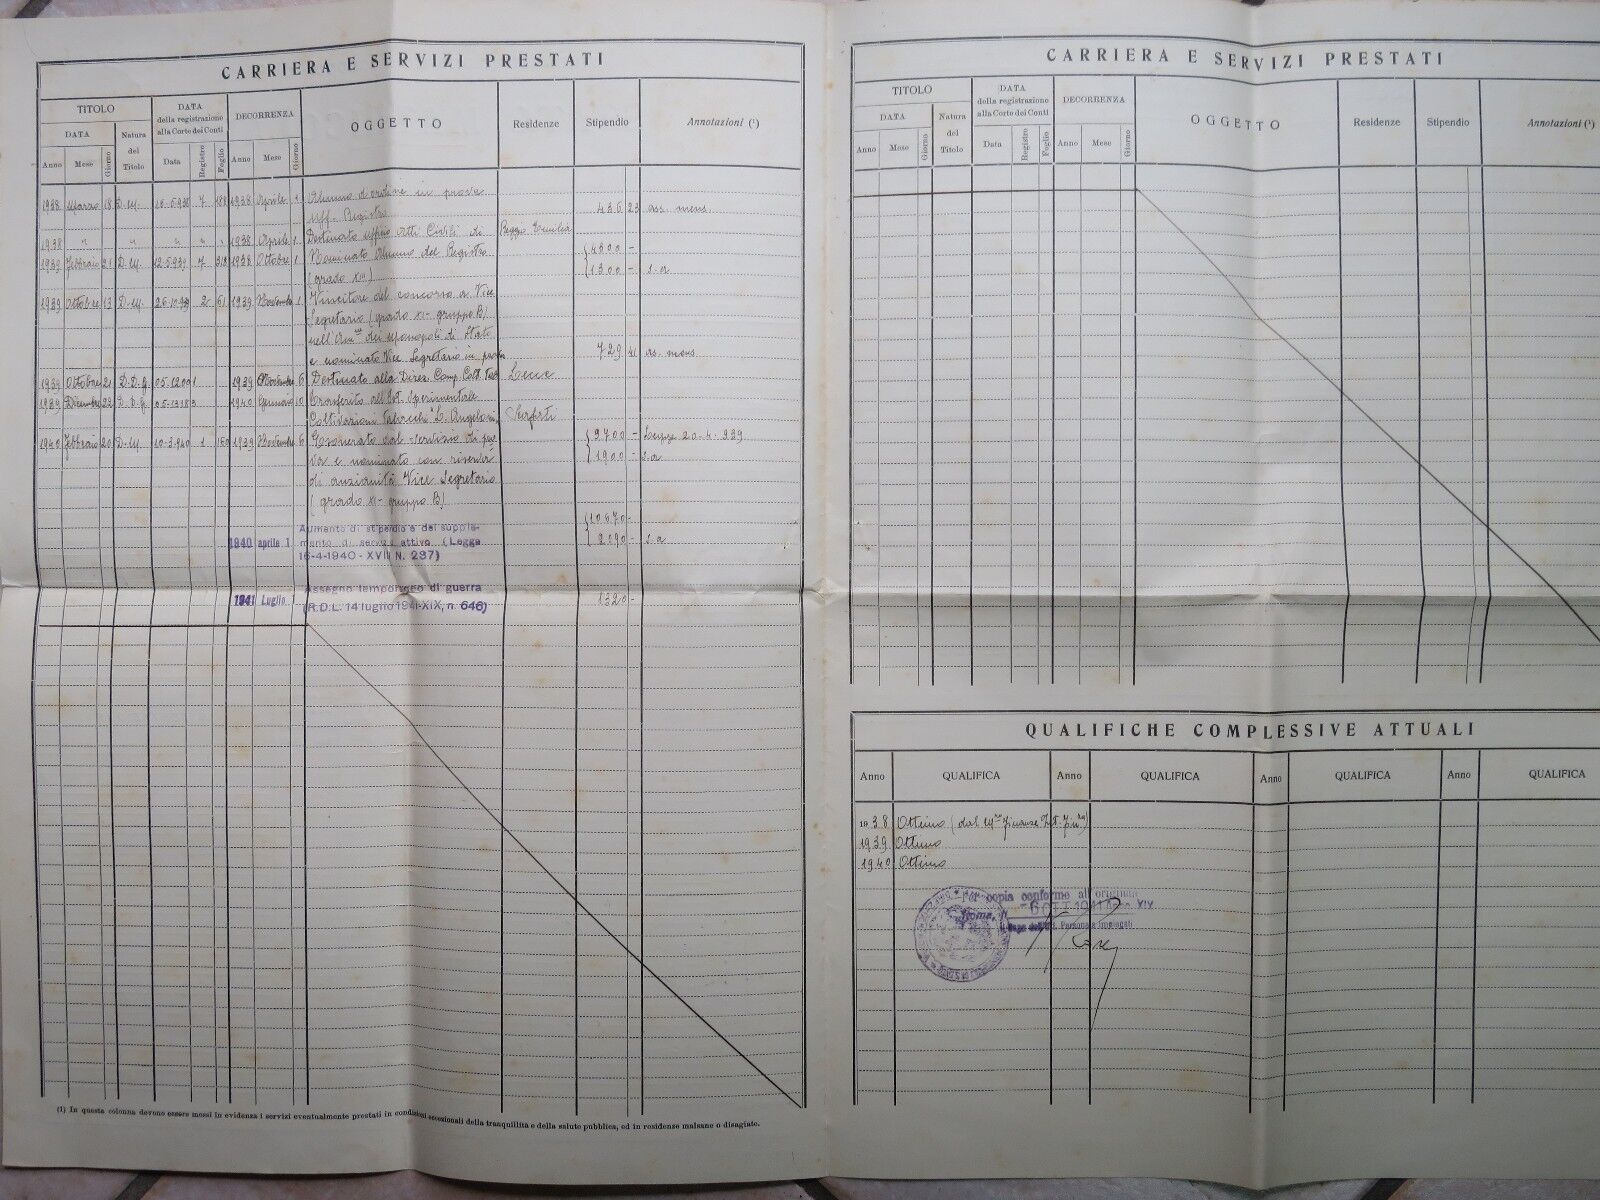 CARRIERA E SERVIZI PRESTATI
TITOLO
DATA
della registrazione
alla Corte dei Conti
DECORRENZA
OGGETTO
Residenze
Stipendio
Annotazioni (¹)
DATA
Natura
del
Titolo
Anno Mese Giorno
Data Registro Foglio
Anno Mese Giorno
1938 Marzo 18 D.M. 7 1938 Aprile 1 Alunno d'ordine in prova
Uff. Registro 436 23 as. mens.
1938 " " " " 1938 Aprile 1 Destinato ufficio Atti Civili di Reggio Emilia
1939 Febbraio 21 D.M. 12.5.939 7 318 1938 Ottobre 1 Nominato Alunno del Registro
(grado XIII) 1300 - s.a
1939 Ottobre 13 D.M. 2 61 1939 Novembre 1 Vincitore del concorso a Vice
Segretario (grado XI - gruppo B)
nell'Amne dei Monopoli di Stato
e nominato Vice Segretario in prova 729 41 as. mens.
1939 Ottobre 21 D.D.G. 1939 Novembre 6 Destinato alla Direz. Comp. Colt. Tab. Lecce
1939 Dicembre 22 D.D.G. 1940 Gennaio 10 Trasferito all'Ist. Sperimentale
Coltivazioni Tabacchi "L. Angeloni" Scafati
1940 Febbraio 20 D.M. 10-3-940 1 160 1939 Novembre 6 Esonerato dal servizio di pro- 9700 - Legge 20-4-939
va e nominato con riserva 1900 - s.a
di anzianità Vice Segretario
(grado XI - gruppo B)
Aumento di stipendio e del supple- 10670 -
1940 aprile 1 mento di servizio attivo (Legge 2090 - s.a
16-4-1940 - XVIII N. 237)
Assegno temporaneo di guerra
1941 Luglio 1 (R.D.L. 14 luglio 1941-XIX, n. 646) 1320 -
(1) In questa colonna devono essere messi in evidenza i servizi eventualmente prestati in condizioni eccezionali della tranquillità e della salute pubblica, od in residenze malsane o disagiate.
CARRIERA E SERVIZI PRESTATI
TITOLO
DATA
della registrazione
alla Corte dei Conti
DECORRENZA
OGGETTO
Residenze
Stipendio
Annotazioni (¹)
DATA
Natura
del
Titolo
Anno Mese Giorno
Data Registro Foglio
Anno Mese Giorno
QUALIFICHE COMPLESSIVE ATTUALI
Anno QUALIFICA Anno QUALIFICA Anno QUALIFICA Anno QUALIFICA
1938 Ottimo (dal Finanze
1939 Ottimo
1940 Ottimo
Per copia conforme all'originale
Roma, li 6 OTT 1941 Anno XIX
Il Capo dell'Uff. Personale Impiegati